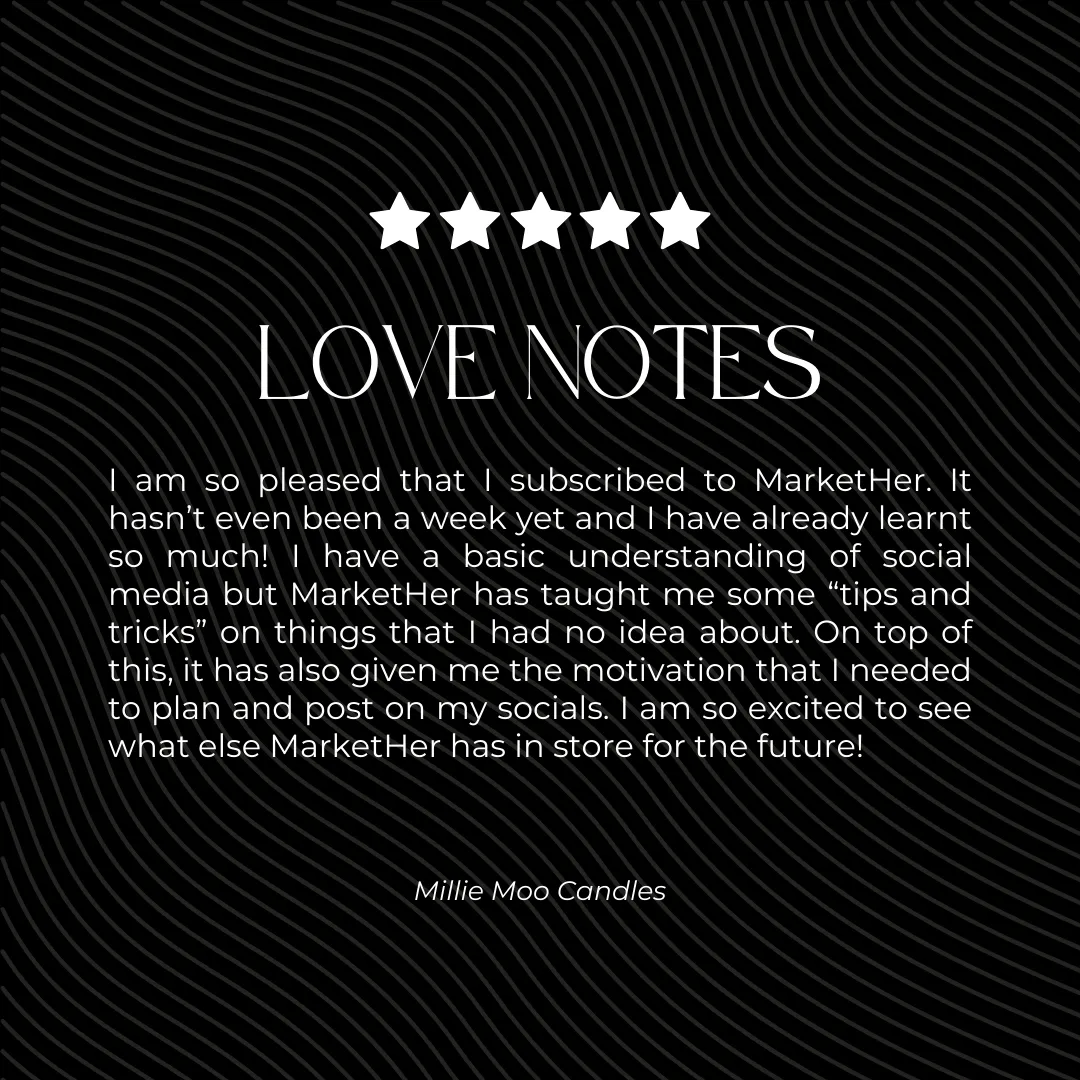 LOVE NOTES
I am so pleased that I subscribed to MarketHer. It
hasn’t even been a week yet and I have already learnt
so much! I have a basic understanding of social
media but MarketHer has taught me some “tips and
tricks” on things that I had no idea about. On top of
this, it has also given me the motivation that I needed
to plan and post on my socials. I am so excited to see
what else MarketHer has in store for the future!
Millie Moo Candles